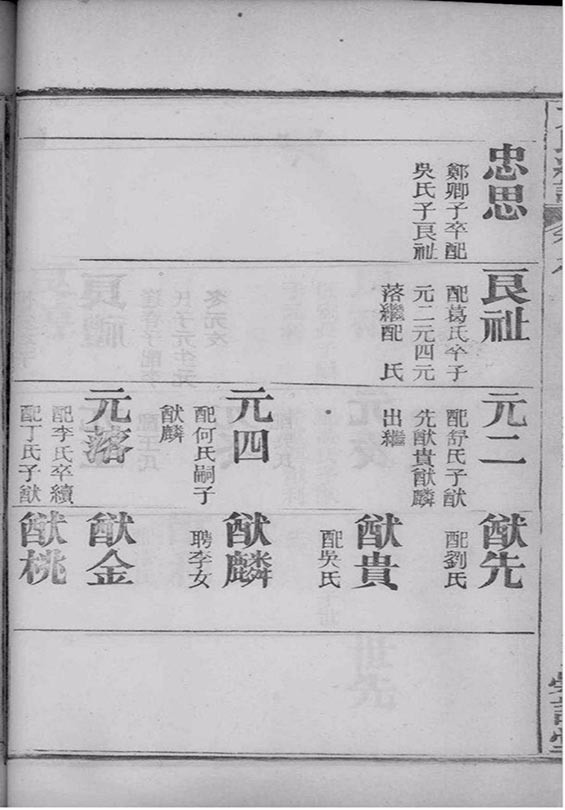 忠思
鄭卿子卒配
吳氏子良祉
良祉
配葛氏卒子
元二元四元
落繼配　氏
元二
配舒氏子猷
先猷貴猷麟
出繼
元四
配何氏嗣子
猷麟
元落
配李氏卒續
配丁氏子猷
猷先
配劉氏
猷貴
配吳氏
猷麟
聘李女
猷金
猷桃